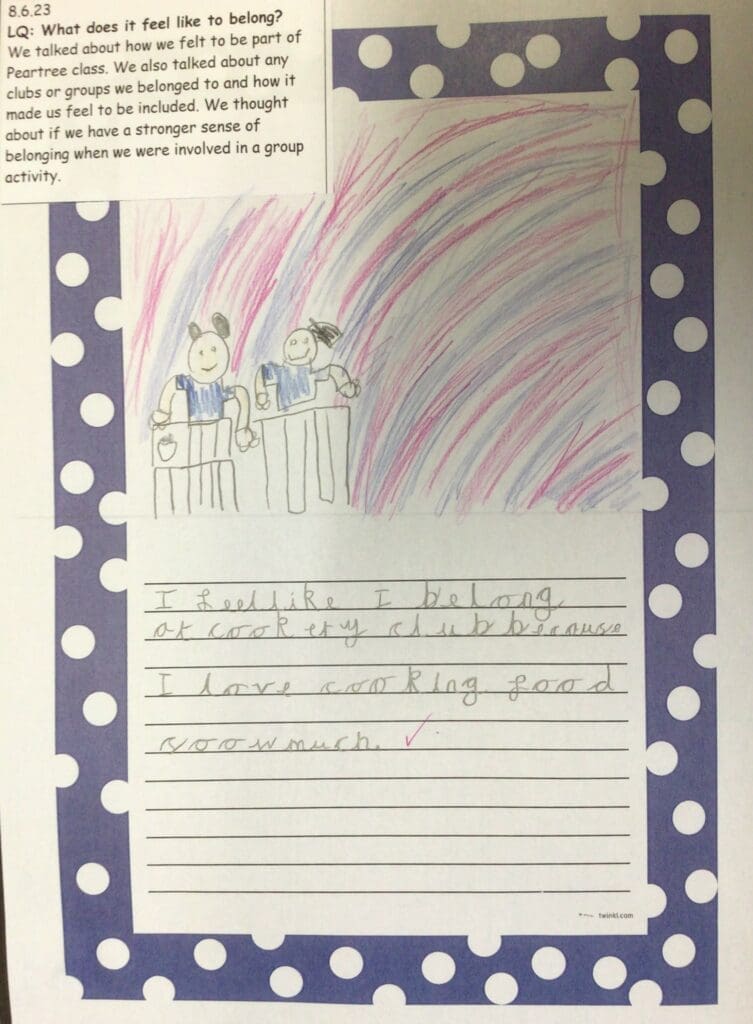 8.6.23
LQ: What does it feel like to belong?
We talked about how we felt to be part of
Peartree class. We also talked about any
clubs or groups we belonged to and how it
made us feel to be included. We thought
about if we have a stronger sense of
belonging when we were involved in a group
activity.
I feel like I belong
at cookery club because
I love cooking food
soow much.
twinkl.com